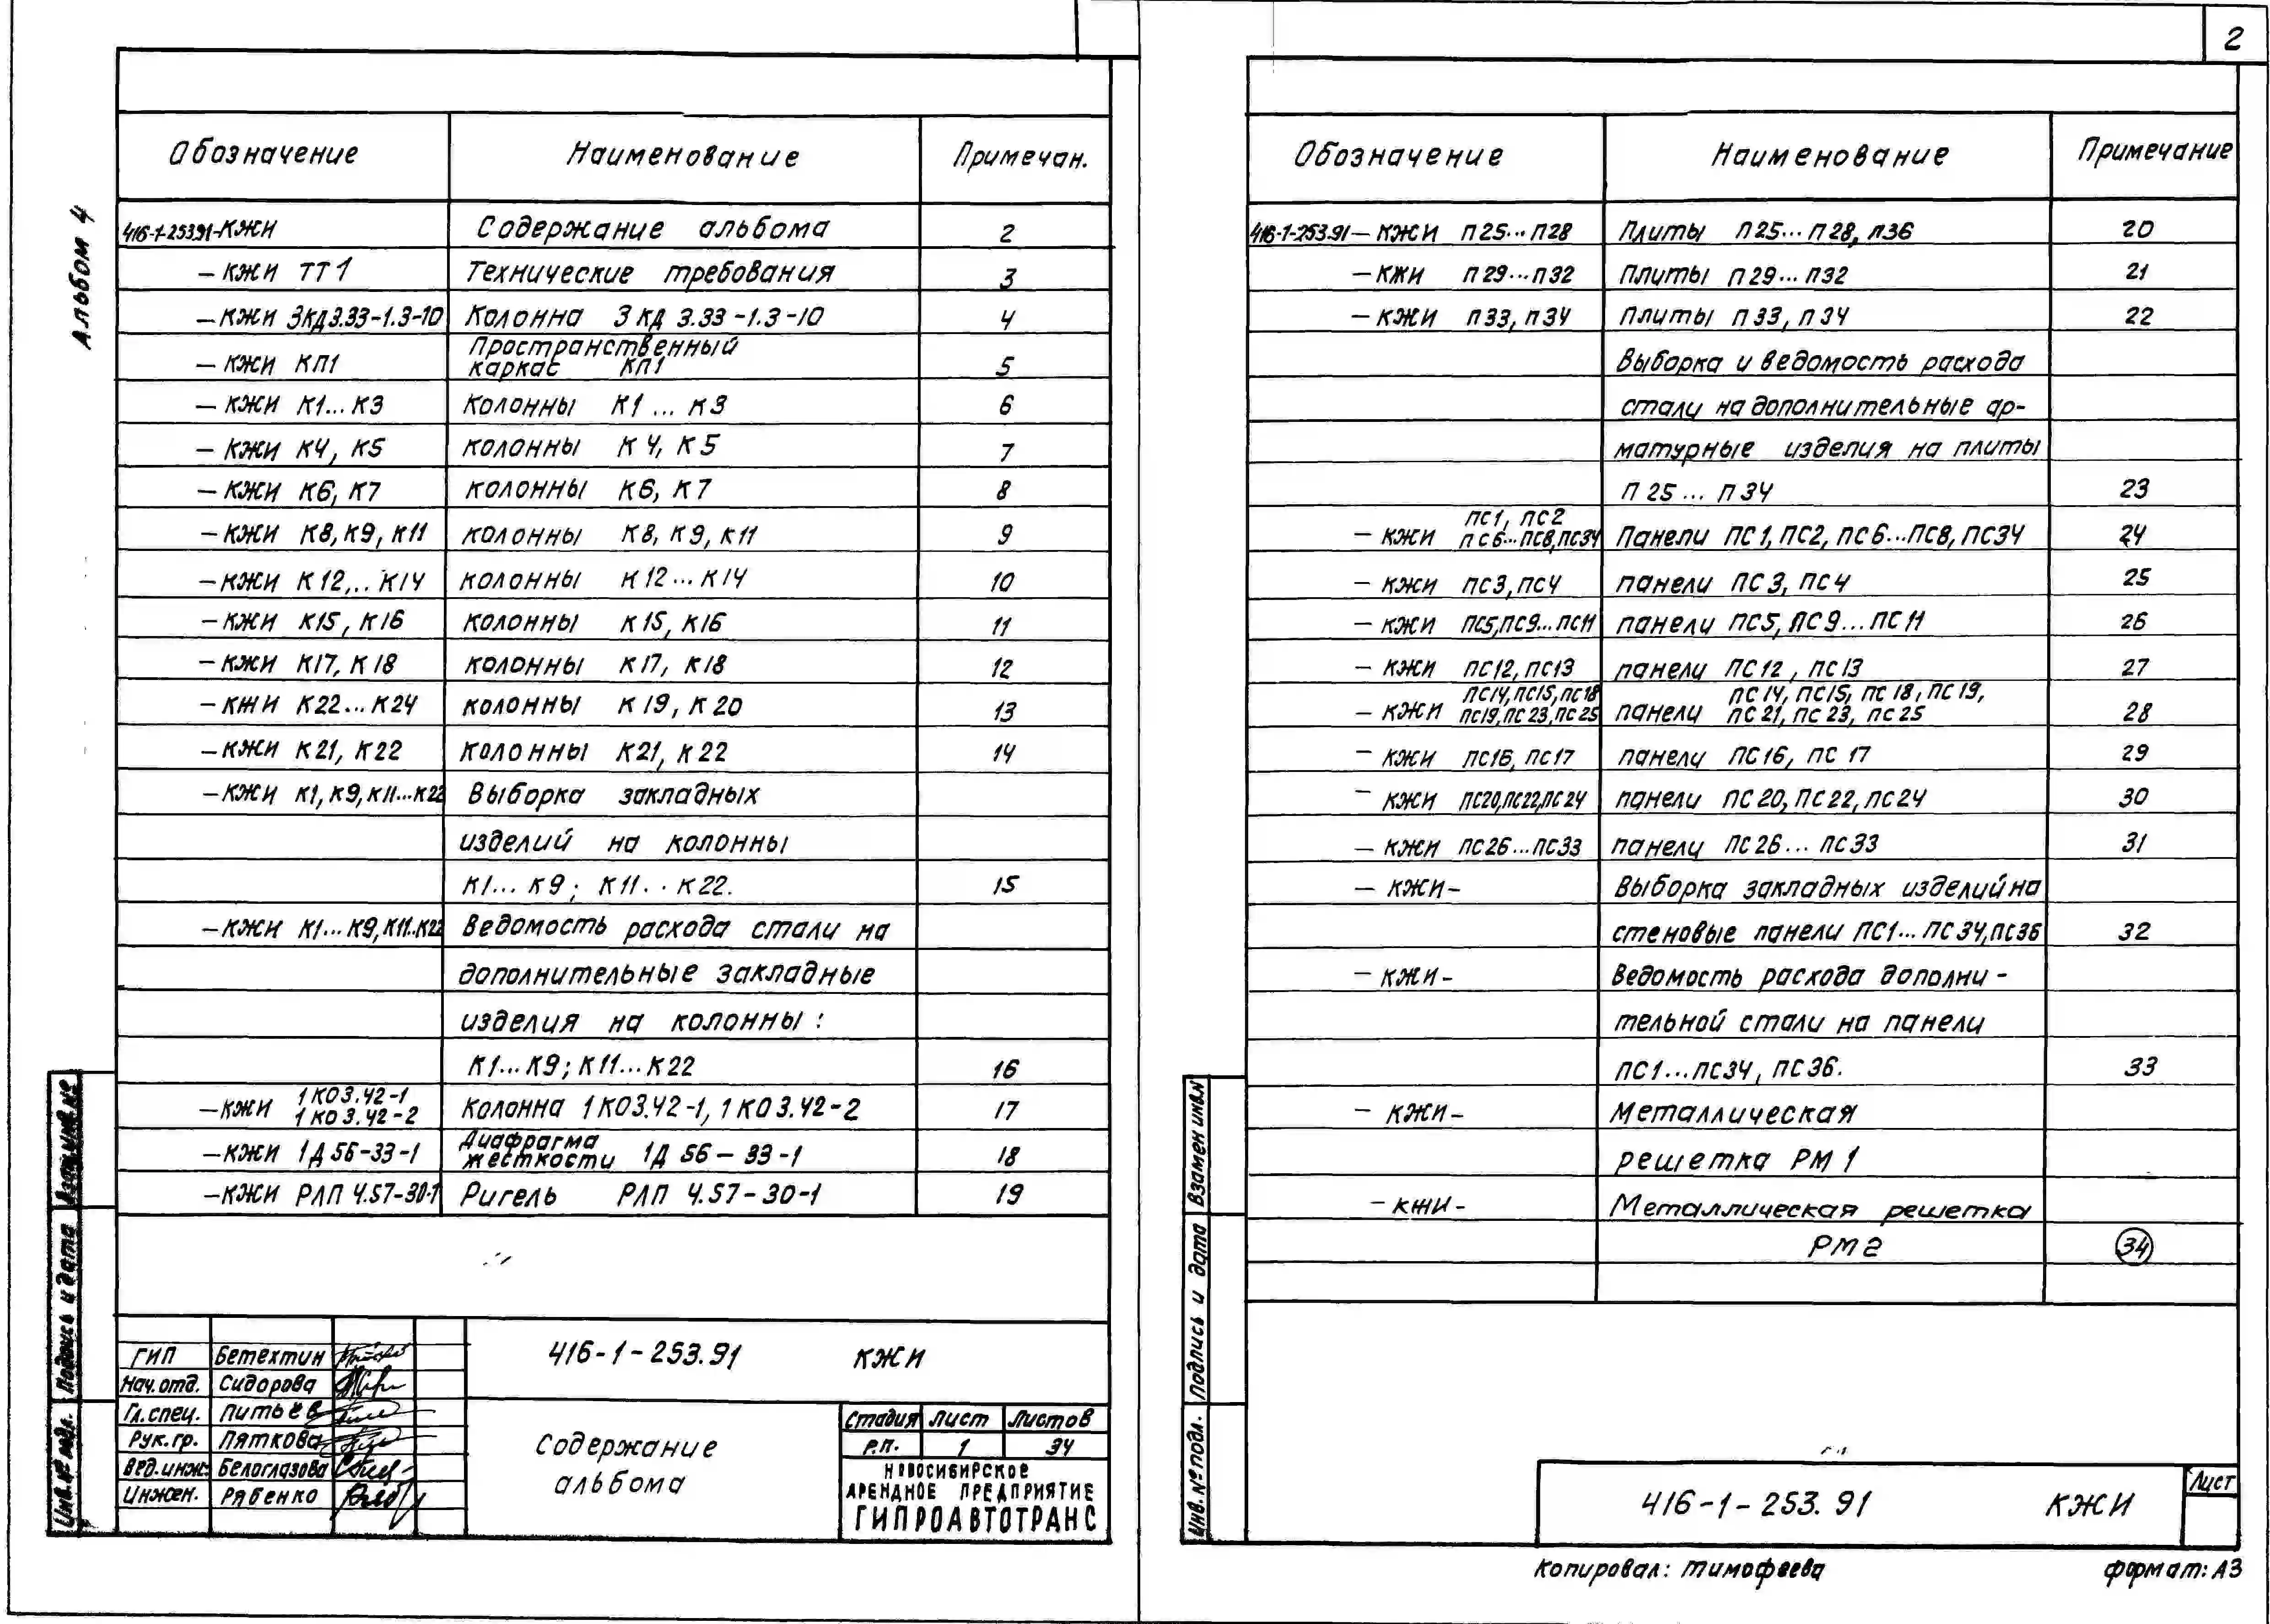 2
Альбом 4
Обозначение Наименование Примечан.
416-1-253.91-КЖИ Содержание альбома 2
-КЖИ ТТ1 Технические требования 3
-КЖИ 3КД3.33-1.3-10 Колонна 3КД 3.33-1.3-10 4
Пространственный
-КЖИ КП1 каркас КП1 5
-КЖИ К1...К3 Колонны К1...К3 6
-КЖИ К4, К5 колонны К4, К5 7
-КЖИ К6, К7 колонны К6, К7 8
-КЖИ К8, К9, К11 колонны К8, К9, К11 9
-КЖИ К12,..К14 колонны К12...К14 10
-КЖИ К15, К16 колонны К15, К16 11
-КЖИ К17, К18 колонны К17, К18 12
-КЖИ К22...К24 колонны К19, К20 13
-КЖИ К21, К22 колонны К21, К22 14
-КЖИ К1, К9, К11...К22 Выборка закладных
изделий на колонны
К1...К9; К11..К22. 15
-КЖИ К1...К9, К11..К22 Ведомость расхода стали на
дополнительные закладные
изделия на колонны:
К1...К9; К11...К22 16
1КО3.42-1
-КЖИ 1КО3.42-2 Колонна 1КО3.42-1, 1КО3.42-2 17
Диафрагма
-КЖИ 1Д56-33-1 жесткости 1Д 56-33-1 18
-КЖИ РЛП 4.57-30-1 Ригель РЛП 4.57-30-1 19
ГИП Бетехтин
Нач.отд. Сидорова
Гл.спец. Питьев
Рук.гр. Пяткова
Вед.инж. Белоглазова
Инжен. Рябенко
416-1-253.91 КЖИ
Содержание
альбома
Стадия Лист Листов
Р.П. 1 34
НОВОСИБИРСКОЕ
АРЕНДНОЕ ПРЕДПРИЯТИЕ
ГИПРОАВТОТРАНС
Инв.№ подл. Подпись и дата Взам.инв.№
Обозначение Наименование Примечание
416-1-253.91-КЖИ П25...П28 Плиты П25...П28, П36 20
-КЖИ П29...П32 Плиты П29...П32 21
-КЖИ П33, П34 Плиты П33, П34 22
Выборка и ведомость расхода
стали на дополнительные ар-
матурные изделия на плиты
П25...П34 23
ПС1, ПС2
-КЖИ ПС6...ПС8, ПС34 Панели ПС1, ПС2, ПС6...ПС8, ПС34 24
-КЖИ ПС3, ПС4 панели ПС3, ПС4 25
-КЖИ ПС5, ПС9...ПС11 панели ПС5, ПС9...ПС11 26
-КЖИ ПС12, ПС13 панели ПС12, ПС13 27
ПС14, ПС15, ПС18 ПС14, ПС15, ПС18, ПС19,
-КЖИ ПС19, ПС23, ПС25 панели ПС21, ПС23, ПС25 28
-КЖИ ПС16, ПС17 панели ПС16, ПС17 29
-КЖИ ПС20, ПС22, ПС24 панели ПС20, ПС22, ПС24 30
-КЖИ ПС26...ПС33 панели ПС26...ПС33 31
-КЖИ- Выборка закладных изделий на
стеновые панели ПС1...ПС34, ПС36 32
-КЖИ- Ведомость расхода дополни-
тельной стали на панели
ПС1...ПС34, ПС36. 33
-КЖИ- Металлическая
решетка РМ1
-КЖИ- Металлическая решетка
РМ2 34
Инв.№ подл. Подпись и дата Взамен инв.№
416-1-253.91 КЖИ
Лист
Копировал: Тимофеева Формат: А3